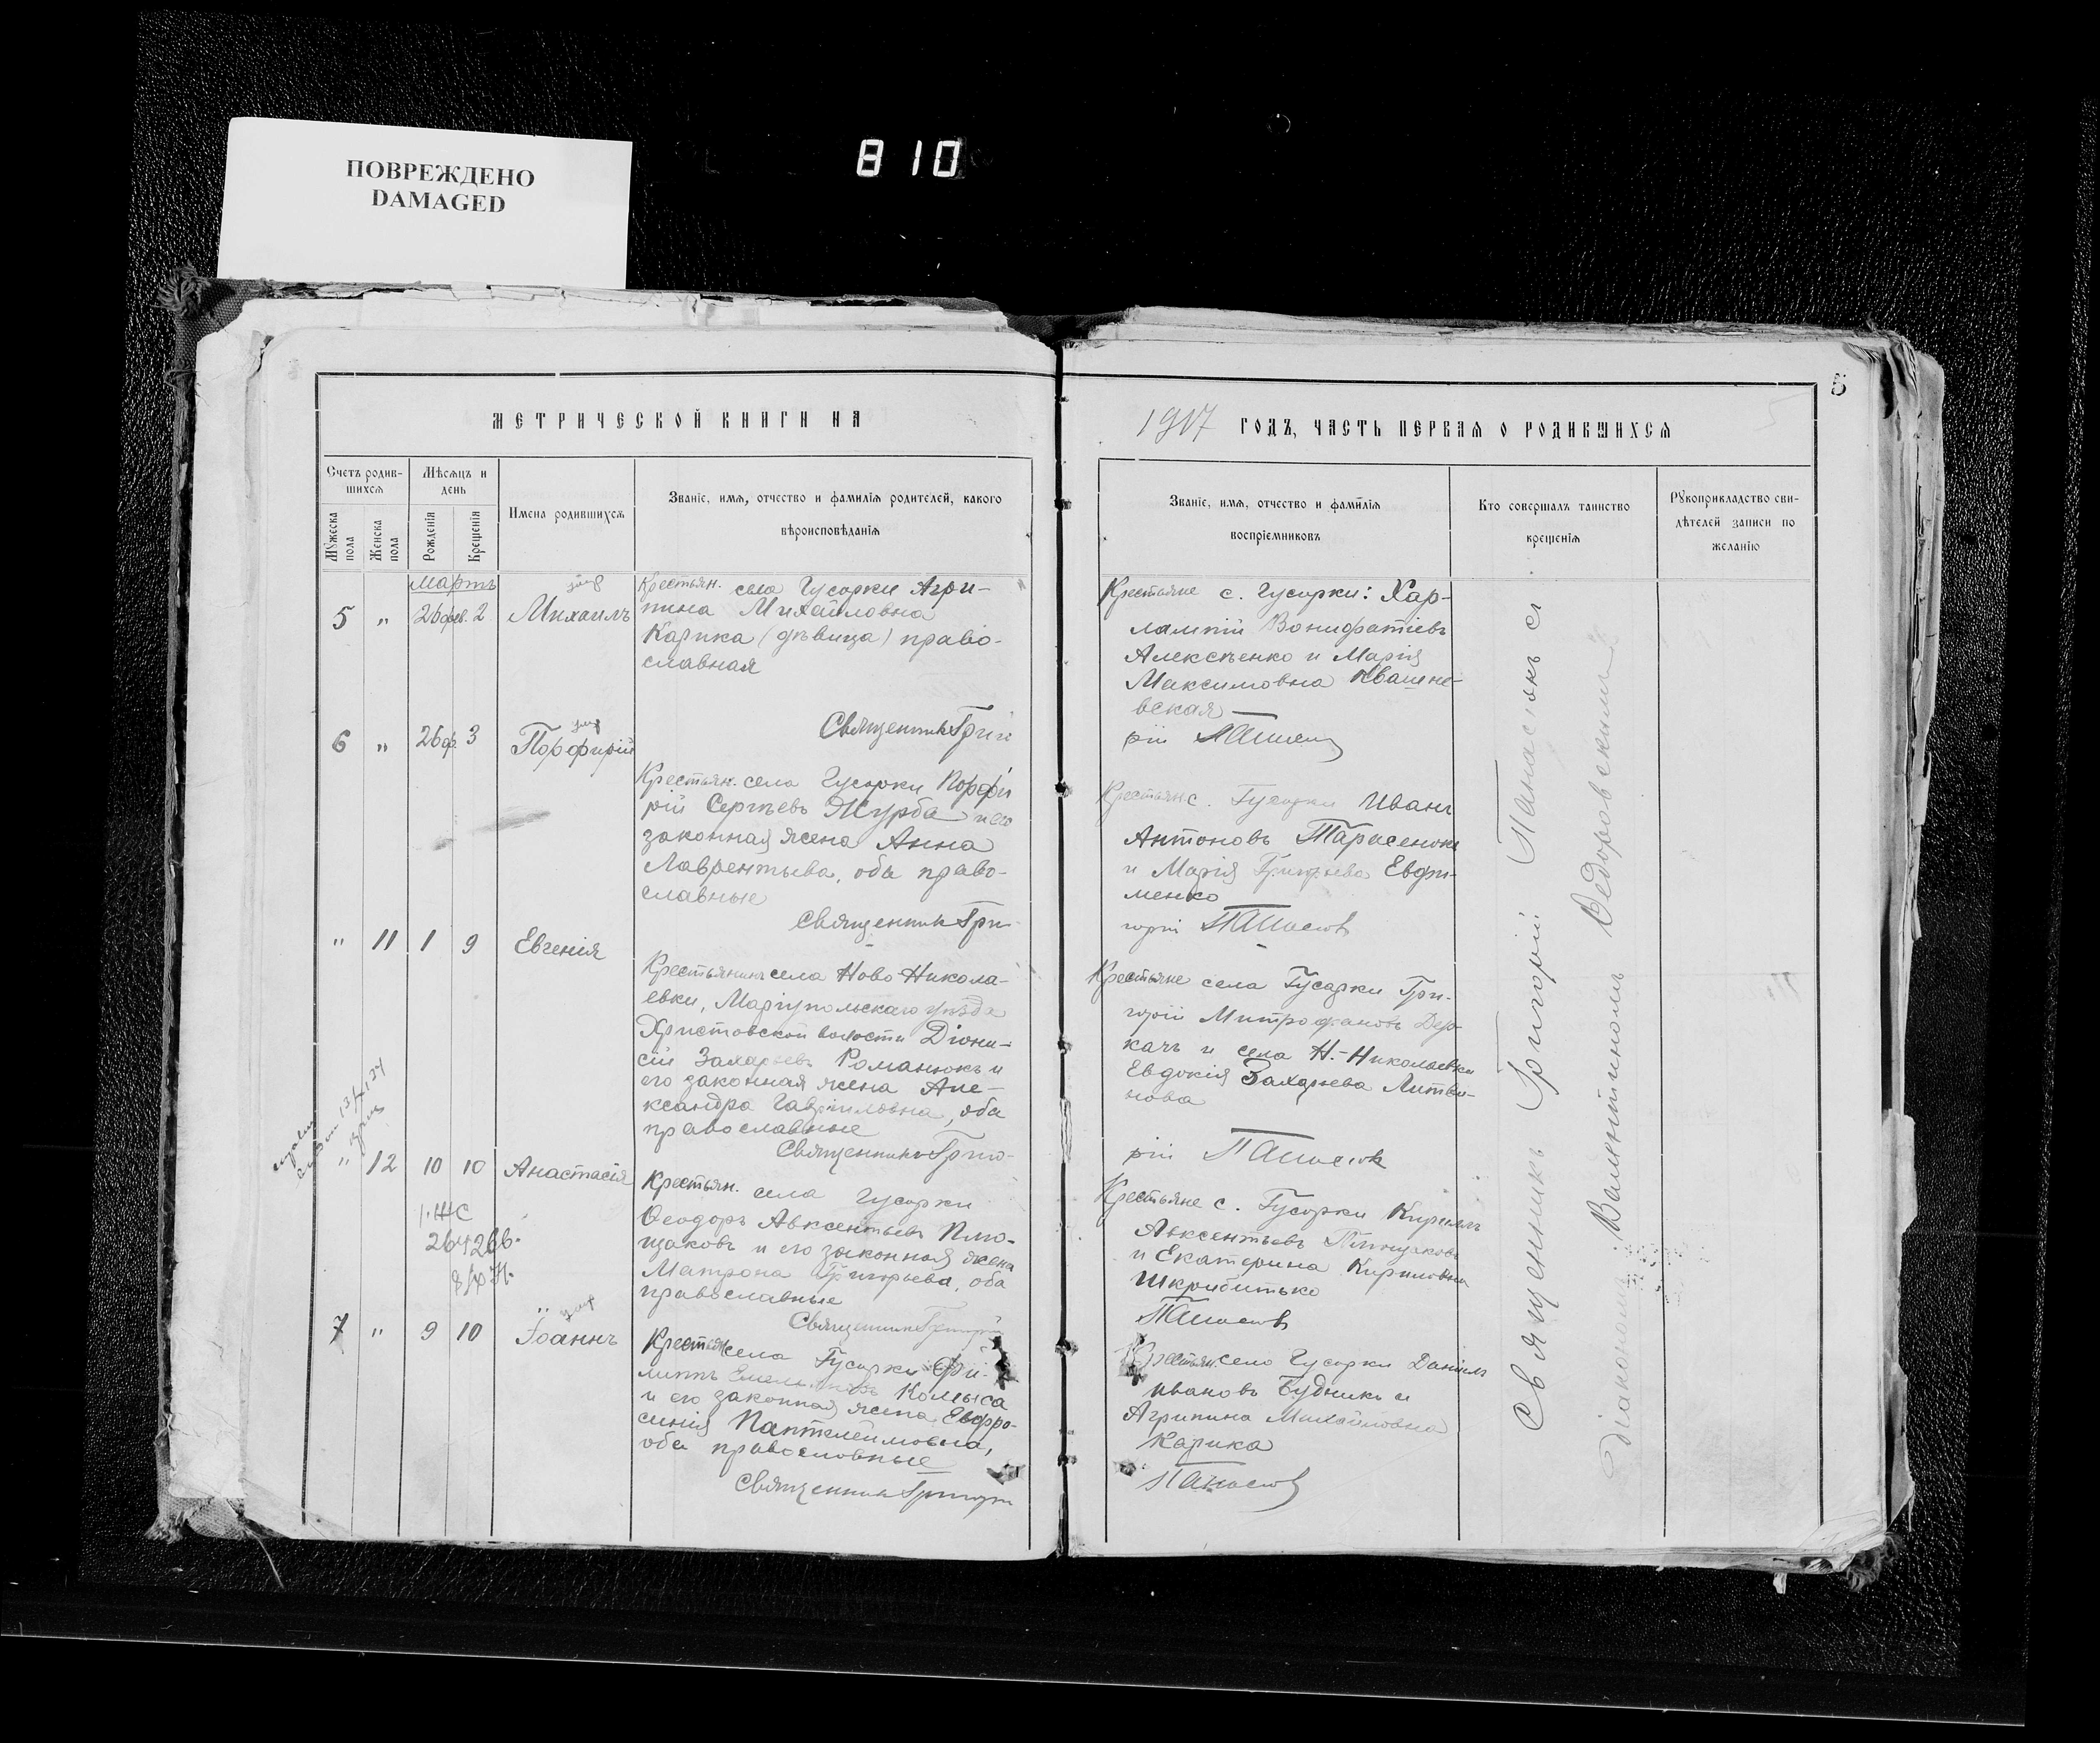 ПОВРЕЖДЕНО
DAMAGED
810
5
МЕТРИЧЕСКОЙ КНИГИ НА
1917 ГОДЪ, ЧАСТЬ ПЕРВАЯ О РОДИВШИХСЯ
Счетъ родив-
шихся
Мѣсяцъ и
день
Мужеска
пола
Женска
пола
Рожденія
Крещенія
Имена родившихся
Званіе, имя, отчество и фамилія родителей, какого
вѣроисповѣданія
Званіе, имя, отчество и фамилія
воспріемниковъ
Кто совершалъ таинство
крещенія
Рукоприкладство сви-
дѣтелей записи по
желанію
Мартъ
умер
5 " 26 фев. 2 Михаилъ
Крестьян. села Гусарки Агри-
пина Михайловна
Карика (дѣвица) право-
славная
Священник Григо
Крестьяне с. Гусарки: Хар-
лампій Вонифатіевъ
Алексѣенко и Марія
Максимовна Квашне-
вская
рій Панасюк
умер
6 " 26 ф. 3 Порфирій
Крестьян. села Гусарки Порфи
рій Сергѣевъ Журба и его
законная жена Анна
Лаврентьева, оба право-
славные
Священник Гри-
Крестьян с. Гусарки Иванъ
Антоновъ Тарасенко
и Марія Григорьева Евфи-
менко
горій Панасюк
" 11 1 9 Евгенія
Крестьянинъ села Ново-Никола-
евки, Маріупольскаго уѣзда
Христовской волости Діони-
сій Захарьевъ Романюкъ и
его законная жена Але-
ксандра Гавріиловна, оба
православные
Священникъ Григо-
Крестьяне села Гусарки Гри-
горій Митрофановъ Дер-
качъ и села Н.-Николаевки
Евдокія Захарьева Литви-
нова
рій Панасюк
" 12 10 10 Анастасія
Крестьян. села Гусарки
Ѳеодоръ Авксентьевъ Плю-
щаковъ и его законная жена
Матрона Григорьева, оба
православные
Священник Григорій
Крестьяне с. Гусарки Кириллъ
Авксентьевъ Плющаковъ
и Екатерина Кирилловна
Шкрибитько
Панасюк
умер
7 " 9 10 Іоаннъ
Крестьян села Гусарки Фи-
липпъ Емельяновъ Колыса
и его законная жена Евфро-
синія Пантелеимовна,
оба православные
Священник Григорій
Крестьян. села Гусарки Даніилъ
Ивановъ Будникъ и
Агрипина Михайловна
Карика
Панасюк
Священникъ Григорій Панасюкъ съ
Діакономъ Валентиномъ Ѳедоровскимъ